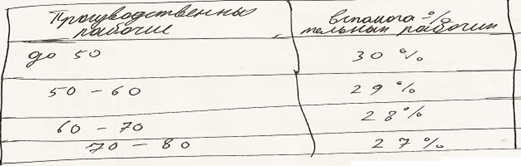 Производственные рабочие
вспомога-% тельных рабочих
до 50 30 %
50 - 60 29 %
60 - 70 28 %
70 - 80 27 %